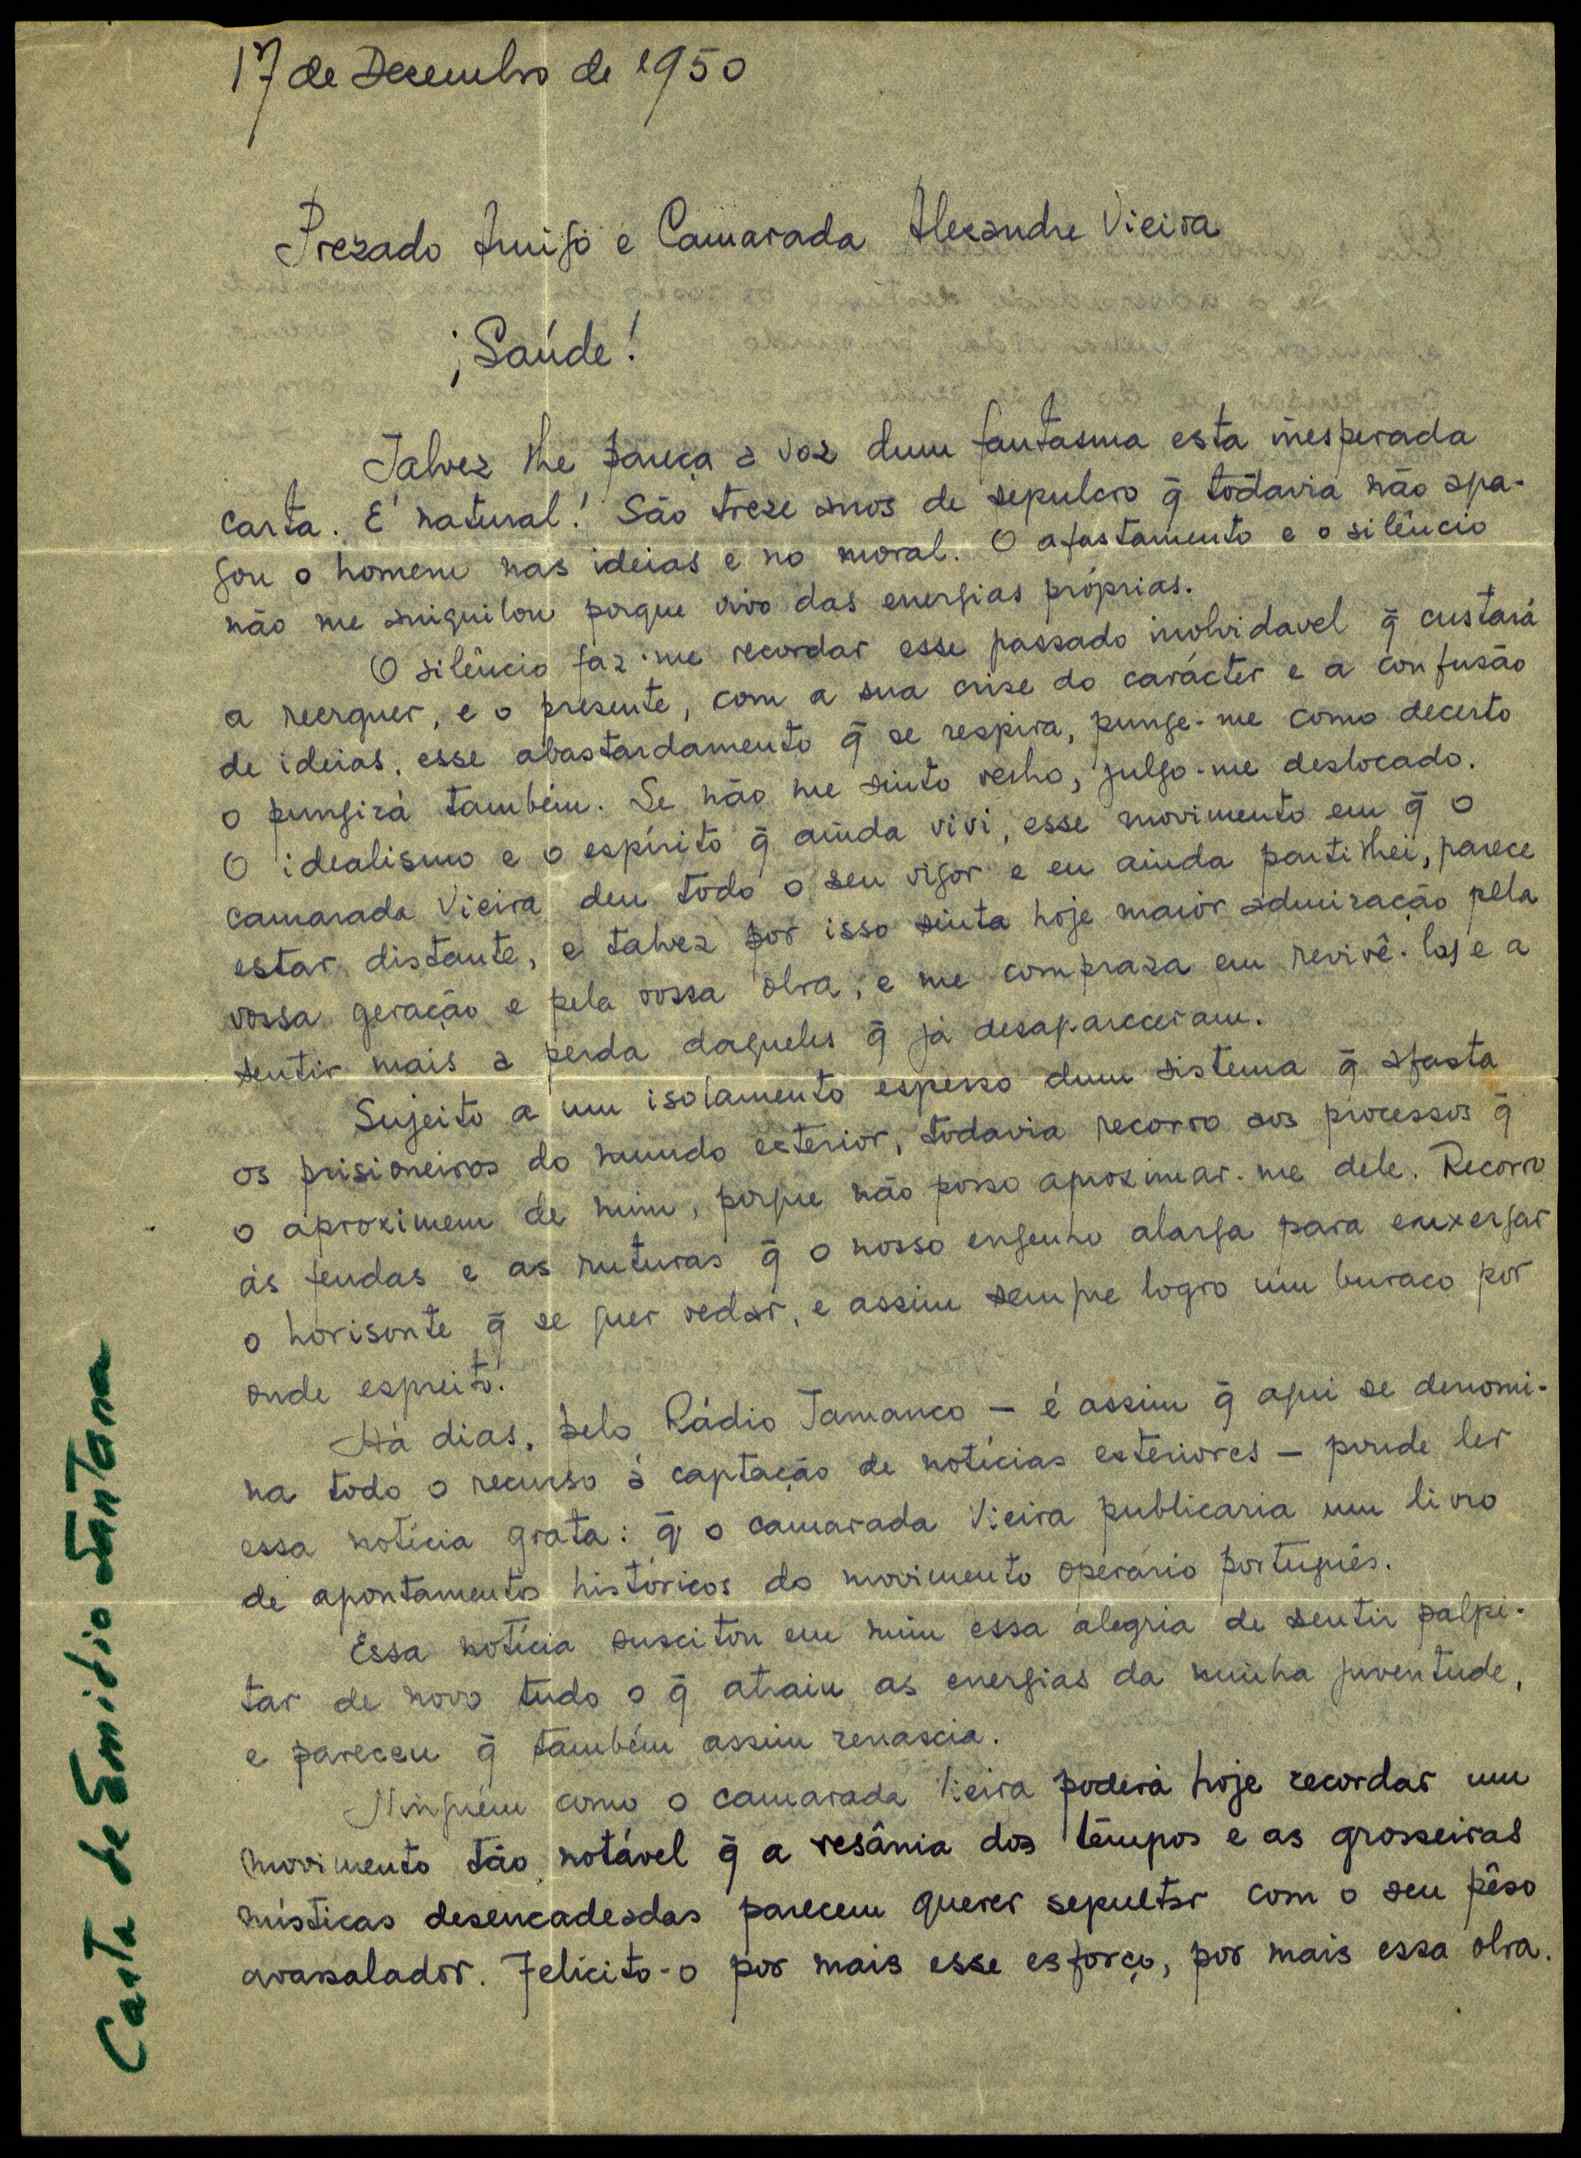 17 de Dezembro de 1950
Prezado Amigo e Camarada Alexandre Vieira
¡Saúde!
Talvez lhe pareça a voz dum fantasma esta inesperada
carta. É natural! São treze anos de sepulcro q̄ todavia não apa-
gou o homem nas ideias e no moral. O afastamento e o silêncio
não me aniquilou porque vivo das energias próprias.
O silêncio faz-me recordar esse passado inolvidavel q̄ custará
a reerguer, e o presente, com a sua crise do carácter e a confusão
de ideias, esse abastardamento q̄ se respira, punge-me como decerto
o pungirá também. Se não me sinto velho, julgo-me deslocado.
O idealismo e o espírito q̄ ainda vivi, esse movimento em q̄ o
camarada Vieira deu todo o seu vigor e eu ainda partilhei, parece
estar distante, e talvez por isso sinta hoje maior admiração pela
vossa geração e pela vossa obra, e me compraza em revivê-los e a
sentir mais a perda daqueles q̄ já desapareceram.
Sujeito a um isolamento espesso dum sistema q̄ afasta
os prisioneiros do mundo exterior, todavia recorro aos processos q̄
o aproximem de mim, porque não posso aproximar-me dele. Recorro
às fendas e as ruturas q̄ o nosso engenho alarga para enxergar
o horisonte q̄ se quer vedar, e assim sempre logro um buraco por
onde espreito!
Há dias, pelo Rádio Tamanco — é assim q̄ aqui se denomi-
na todo o recurso à captação de notícias exteriores — poude ler
essa notícia grata: q̄ o camarada Vieira publicaria um livro
de apontamentos históricos do movimento operário português.
Essa notícia suscitou em mim essa alegria de sentir palpi-
tar de novo tudo o q̄ atraiu as energias da minha juventude,
e pareceu q̄ também assim renascia.
Ninguém como o camarada Vieira poderá hoje recordar um
movimento tão notável q̄ a vesânia dos têmpos e as grosseiras
místicas desencadeadas parecem querer sepultar com o seu pêso
avassalador. Felicito-o por mais esse esforço, por mais essa obra.
Carta de Emídio Santana